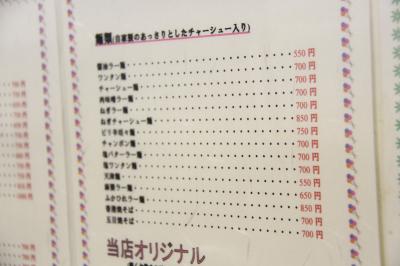 麺類(自家製のあっさりとしたチャーシュー入り)
醤油ラー麺・・・・・・・・・・・・・・・・・・・・・550円
ワンタン麺・・・・・・・・・・・・・・・・・・・・・700円
チャーシュー麺・・・・・・・・・・・・・・・・・・・700円
肉味噌ラー麺・・・・・・・・・・・・・・・・・・・・700円
ねぎラー麺・・・・・・・・・・・・・・・・・・・・・700円
ねぎチャーシュー麺・・・・・・・・・・・・・・・・・850円
ピリ辛坦々麺・・・・・・・・・・・・・・・・・・・・750円
チャンポン麺・・・・・・・・・・・・・・・・・・・・700円
塩バターラー麺・・・・・・・・・・・・・・・・・・・700円
塩ワンタン麺・・・・・・・・・・・・・・・・・・・・700円
天津麺・・・・・・・・・・・・・・・・・・・・・・・700円
麻婆ラー麺・・・・・・・・・・・・・・・・・・・・・550円
ふかひれラー麺・・・・・・・・・・・・・・・・・・・650円
香港焼そば・・・・・・・・・・・・・・・・・・・・・850円
五目焼そば・・・・・・・・・・・・・・・・・・・・・700円
700円
当店オリジナル